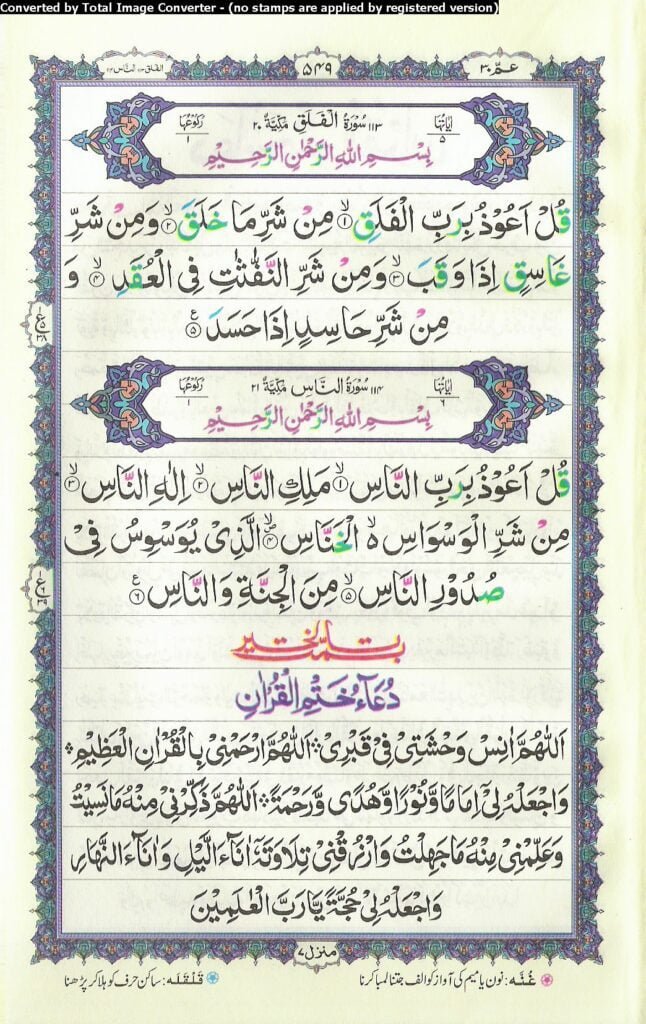 Converted by Total Image Converter - (no stamps are applied by registered version)
عم ٣٠
٥٤٩
الفلق ١١٣ الناس ١١٤
اٰیاتها ٥
١١٣ سُوْرَةُ الْفَلَقِ مَكِّيَّةٌ ٢٠
رُكُوْعُهَا ١
بِسْمِ اللّٰهِ الرَّحْمٰنِ الرَّحِيْمِ
قُلْ اَعُوْذُ بِرَبِّ الْفَلَقِ ۙ﴿١﴾ مِنْ شَرِّ مَا خَلَقَ ۙ﴿٢﴾ وَمِنْ شَرِّ
غَاسِقٍ اِذَا وَقَبَ ۙ﴿٣﴾ وَمِنْ شَرِّ النَّفّٰثٰتِ فِى الْعُقَدِ ۙ﴿٤﴾ وَ
مِنْ شَرِّ حَاسِدٍ اِذَا حَسَدَ ﴿٥﴾ ع
اٰیاتها ٦
١١٤ سُوْرَةُ النَّاسِ مَكِّيَّةٌ ٢١
رُكُوْعُهَا ١
بِسْمِ اللّٰهِ الرَّحْمٰنِ الرَّحِيْمِ
قُلْ اَعُوْذُ بِرَبِّ النَّاسِ ۙ﴿١﴾ مَلِكِ النَّاسِ ۙ﴿٢﴾ اِلٰهِ النَّاسِ ۙ﴿٣﴾
مِنْ شَرِّ الْوَسْوَاسِ ۙ۬ الْخَنَّاسِ ۪ۙ﴿٤﴾ الَّذِىْ يُوَسْوِسُ فِىْ
صُدُوْرِ النَّاسِ ۙ﴿٥﴾ مِنَ الْجِنَّةِ وَالنَّاسِ ﴿٦﴾ ع
دُعَآءُ خَتْمِ الْقُرْاٰنِ
اَللّٰهُمَّ اٰنِسْ وَحْشَتِىْ فِىْ قَبْرِىْ ۞ اَللّٰهُمَّ ارْحَمْنِىْ بِالْقُرْاٰنِ الْعَظِيْمِ ۞
وَاجْعَلْهُ لِىْ اِمَامًا وَّنُوْرًا وَّهُدًى وَّرَحْمَةً ۞ اَللّٰهُمَّ ذَكِّرْنِىْ مِنْهُ مَا نَسِيْتُ
وَعَلِّمْنِىْ مِنْهُ مَا جَهِلْتُ وَارْزُقْنِىْ تِلَاوَتَهٗٓ اٰنَآءَ الَّيْلِ وَاٰنَآءَ النَّهَارِ
وَاجْعَلْهُ لِىْ حُجَّةً يَّا رَبَّ الْعٰلَمِيْنَ
منزل ٧
غُنَّه: نون یا میم کی آواز کو الف جتنا لمبا کرنا
قَلْقَلَه: ساکن حرف کو ہلا کر پڑھنا